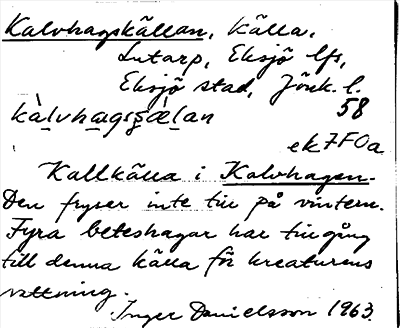 Kalvhagskällan, källa,
Lutarp, Eksjö lfs,
Eksjö stad, Jönk. l.
58
kàlvhagsçä̀lan
ek7F0a
Kallkälla i Kalvhagen.
Den fryser inte till på vintern.
Fyra beteshagar har tillgång
till denna källa för kreaturens
vattning.
Inger Danielsson 1963.